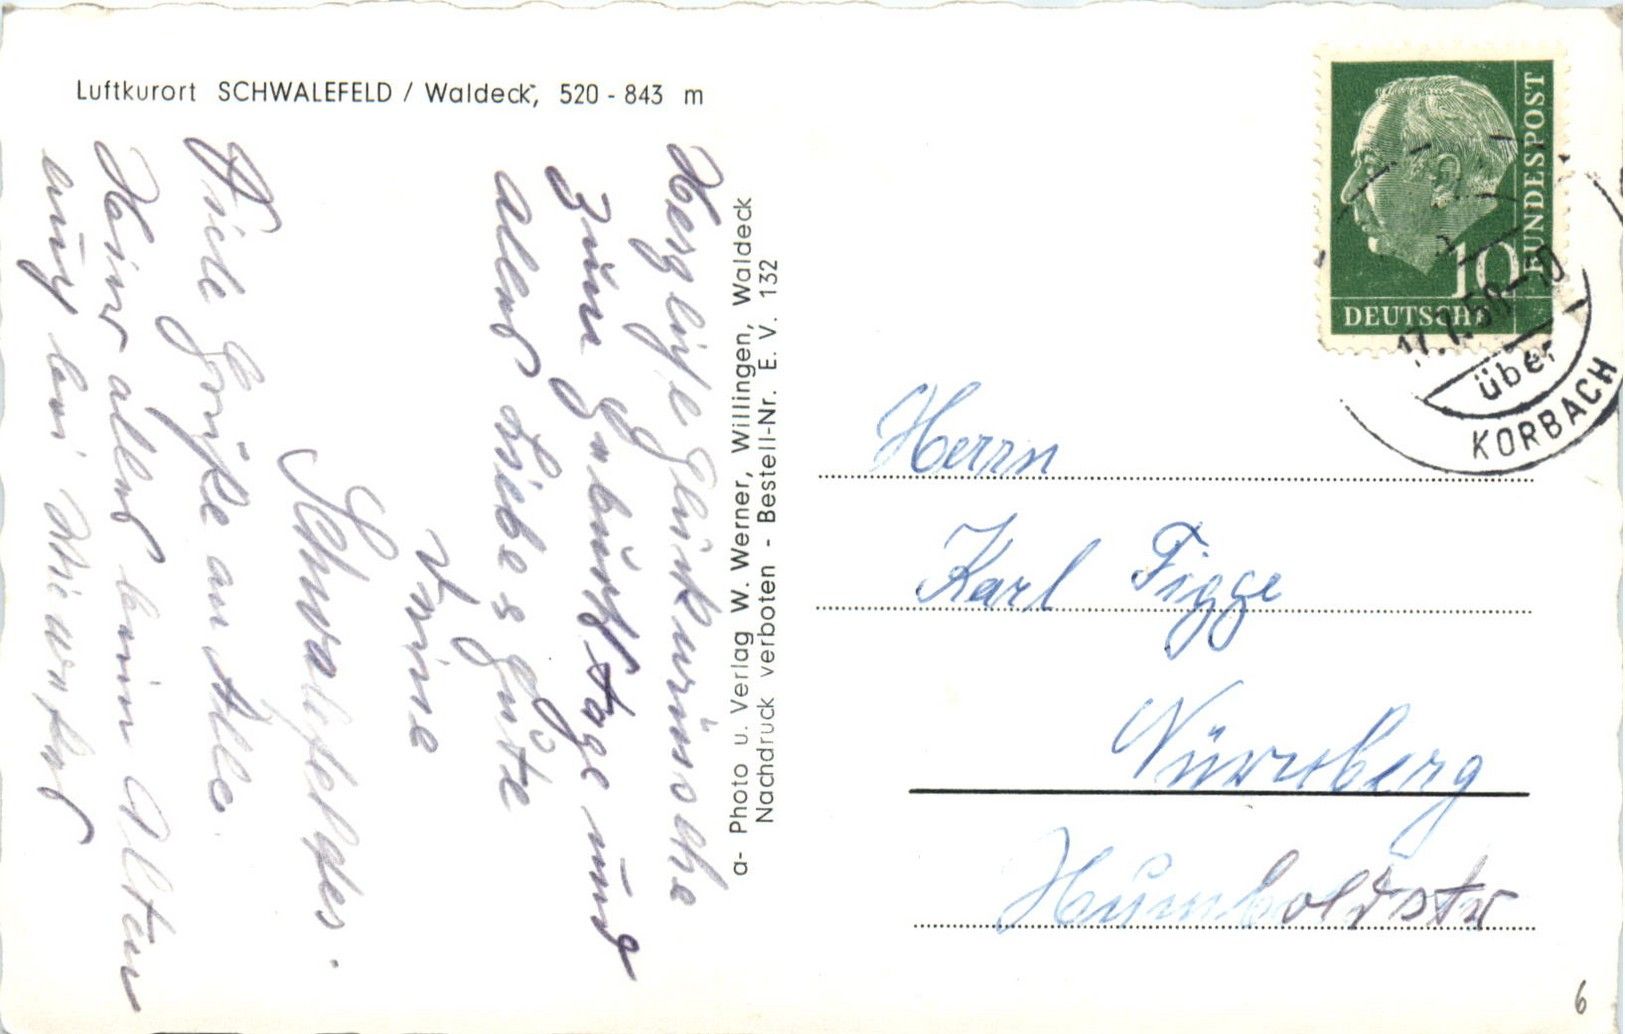 Luftkurort SCHWALEFELD / Waldeck, 520 - 843 m
Herzliche Glückwünsche
zum Geburtstage und
alles Liebe & Gute
Eure
Schwalefelder.
Viele Grüße an Alle.
Heinr alles beim Alten
auch bei
a- Photo u. Verlag W. Werner, Willingen, Waldeck
Nachdruck verboten - Bestell-Nr. E. V. 132
DEUTSCHE
BUNDESPOST
10
17.7.58-10
über
KORBACH
Herrn
Karl Figge
Nürnberg
Humboldstr
6